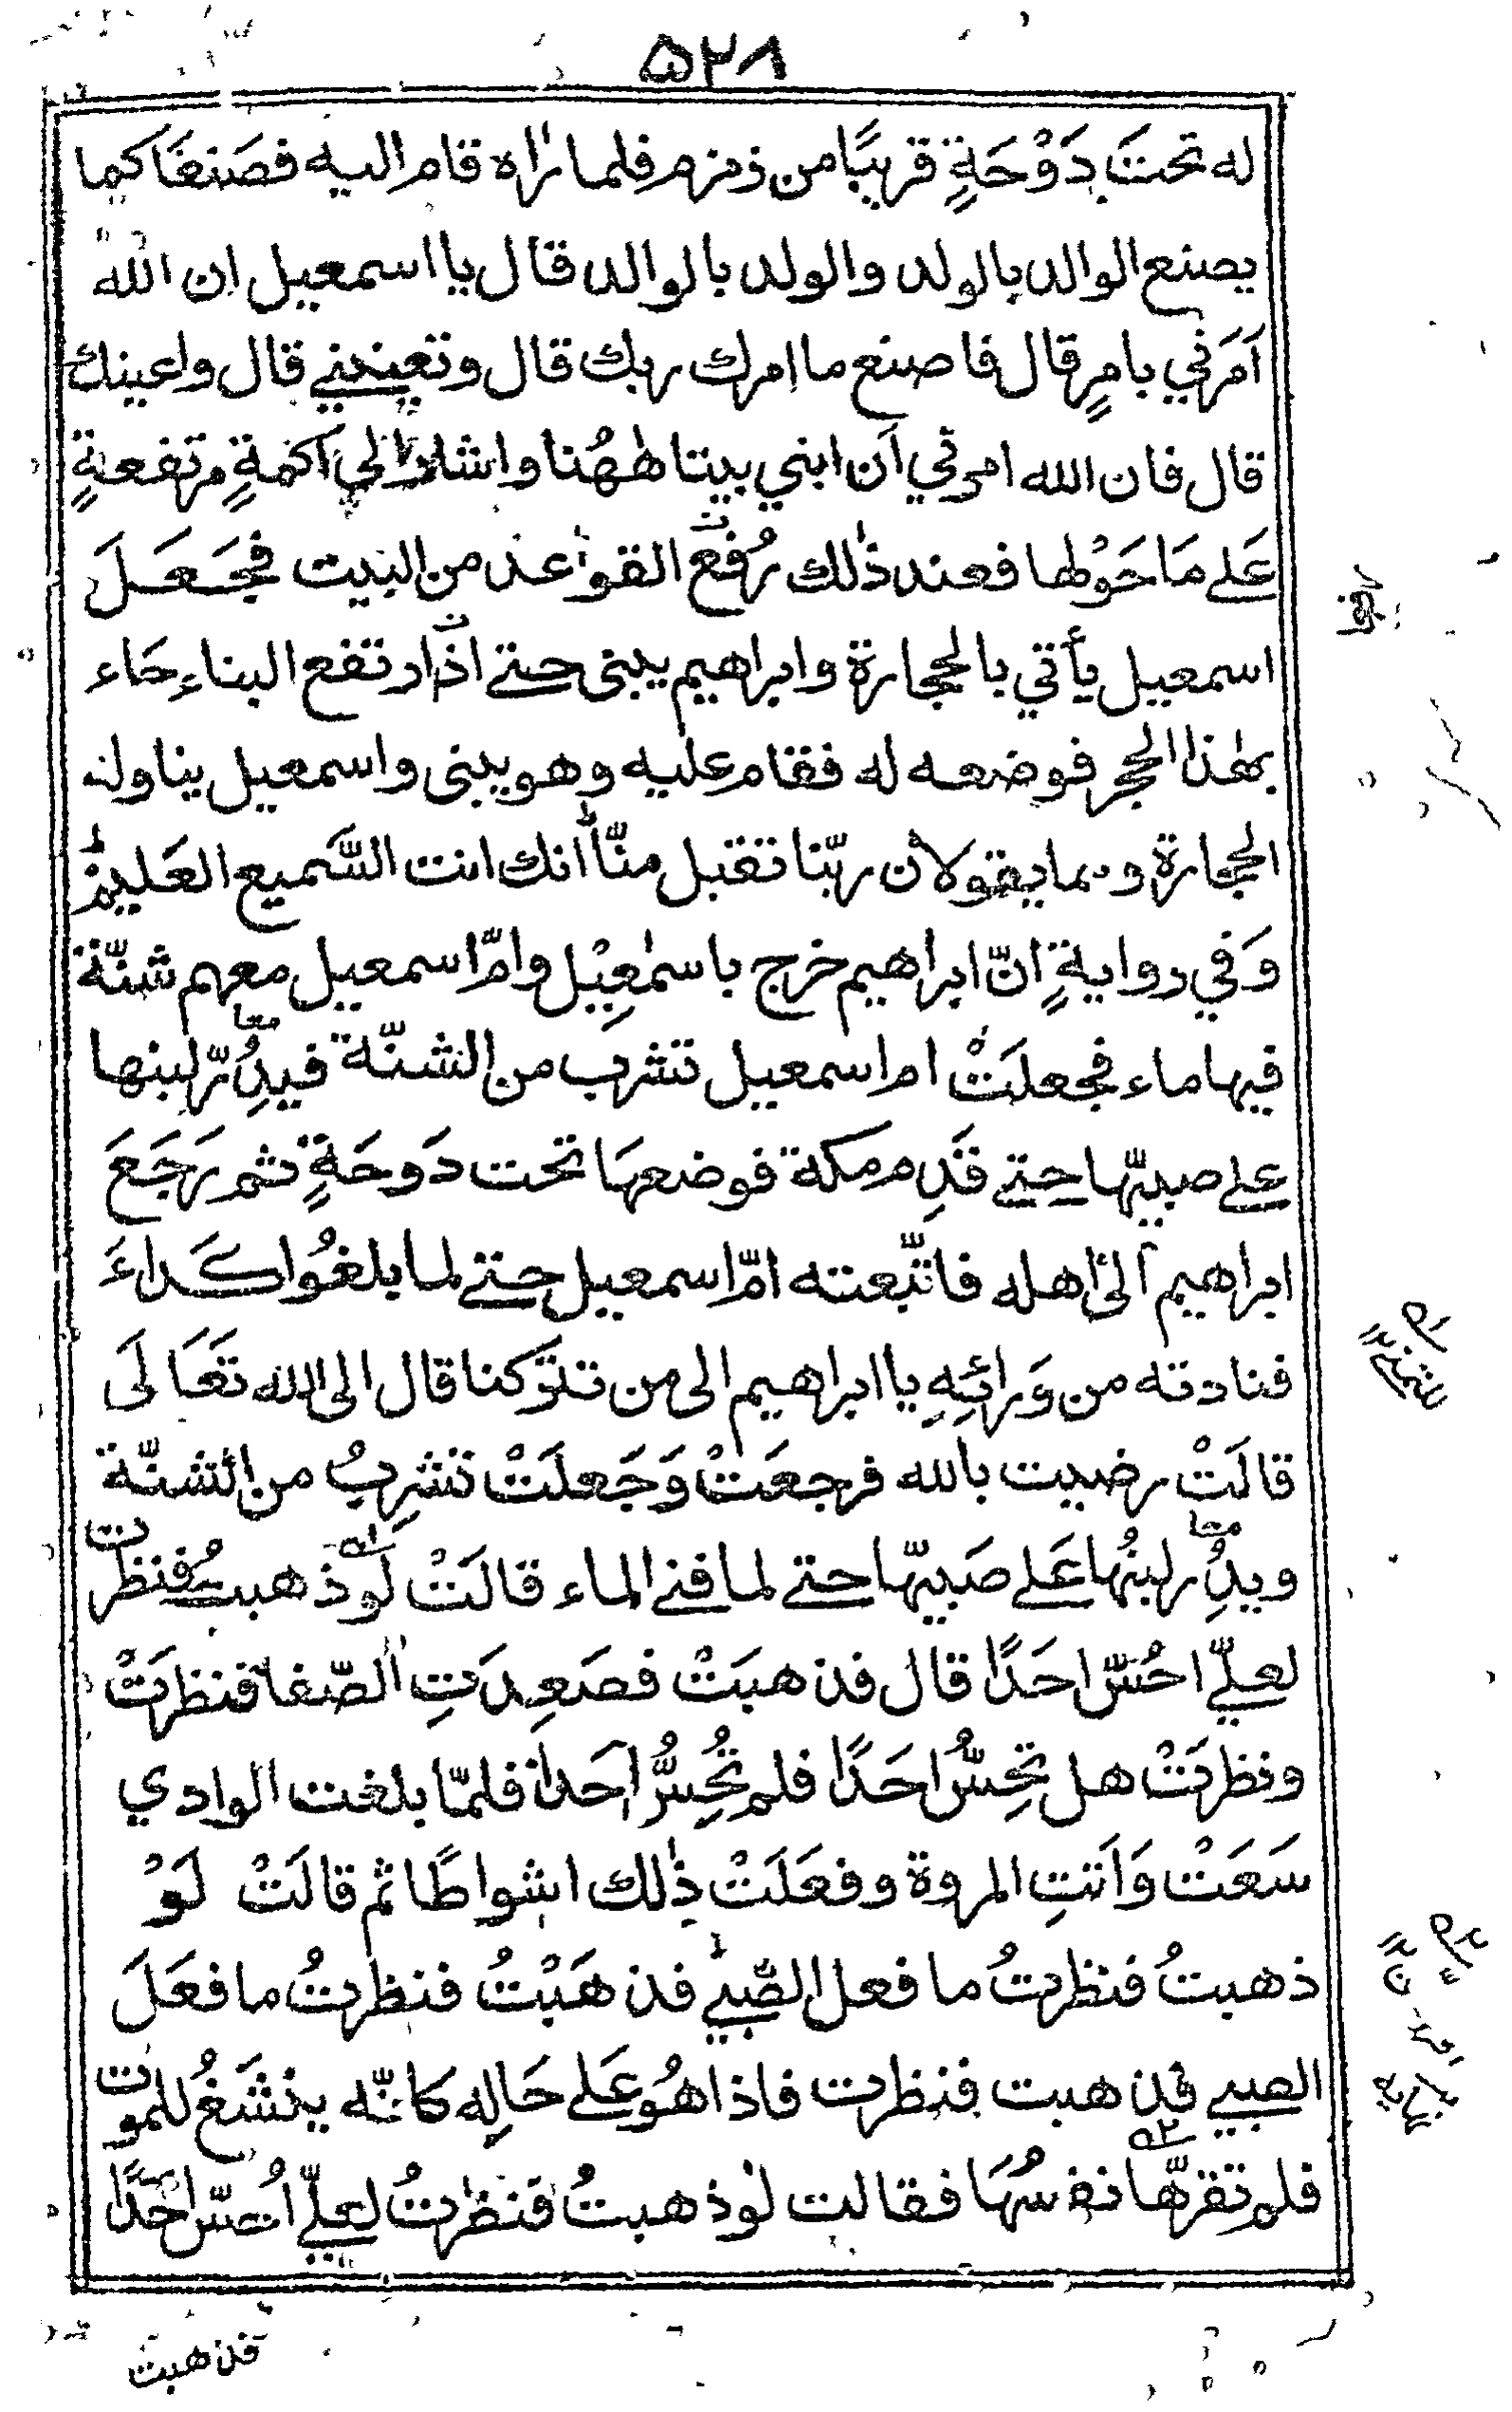 ٥٢٨
له تحتَ دَوْحَةٍ قريبًا من زمزم فلما رٰاه قام اليه فصَنعَا كما
يصنع الوالد بالولد والولد بالوالد قال يا اسمعيل ان الله
اَمَرَني بامرٍ قال فاصنع ما امرك ربك قال وتعينني قال واعينك
قال فان الله امرني اَن ابني بيتا هٰهُنا واشار الي اَكَمةٍ مرتفعةٍ
عَلے مَا حَوْلها فعند ذٰلك رُفع القواعد من البيت فجَعَلَ
اسمعيل يأتي بالحجارة وابراهيم يبنى حتے اذا ارتفع البناء جَاء
بهٰذا الحجر فوضعه له فقام عليه وهو يبنى واسمعيل يناوله
الحجارة وهما يقولان ربّنا تقبل منّا انك انت السَّميع العَليم
وَفي روايةٍ انّ ابراهيم خرج باسمٰعِيْل وامّ اسمعيل معهم شنّة
فيها ماء فجعلَتْ ام اسمعيل تشرب من الشنّة فيدِرُّ لبنها
علے صبيّها حتے قَدِم مكة فوضعهَا تحت دَوحَةٍ ثم رَجَعَ
ابراهيم الىٰ اهله فاتّبعته امّ اسمعيل حتے لما بلغُوا كَداءَ
فنادته من وَرائِهِ يا ابراهيم الى من تتركنا قال الى الله تعَالَى
قالَتْ رضيت بالله فرجعَتْ وَجَعلَتْ تشربُ من الشنّة
ويدِرُّ لبنُها عَلے صَبيّها حتے لما فنے الماء قالَتْ لَو ذهبتُ فنظرت
لعلّے احُسّ احَدًا قال فذهبَتْ فصَعِدَتِ الصّفا فنظرَتْ
ونظرَتْ هل تحِسُّ احَدًا فلم تُحِسُّ اَحَدا فلمّا بلغت الوادي
سَعَتْ وَاَتتِ المروة وفعَلَتْ ذٰلك اشواطًا ثم قالَتْ لَوْ
ذهبتُ فنظرتُ ما فعل الصّبے فذهَبْتُ فنظرتُ ما فعَلَ
الصبے فذهبت فنظرت فاذا هُو عَلے حَالِه كانّه ينشَغُ للموت
فلم تقرّها نفسُهَا فقالت لو ذهبتُ فنظرتُ لعلّے اُحسّ احَدًا
فذهبت